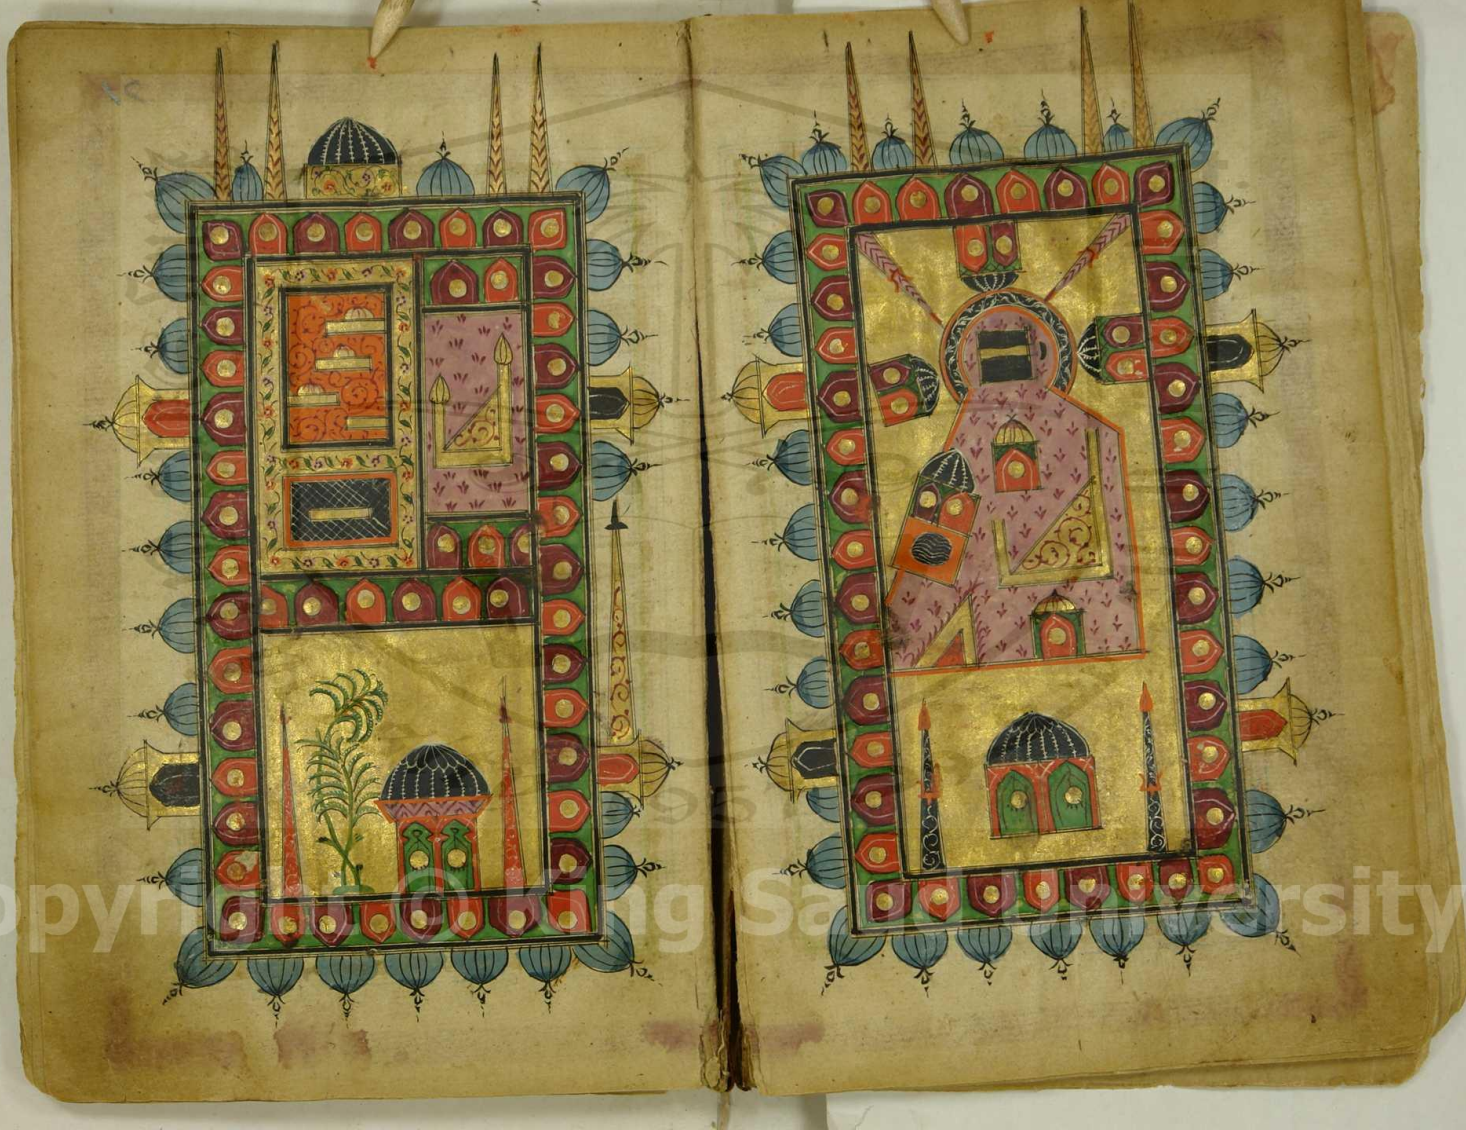 Copyright © King Saud University
1957